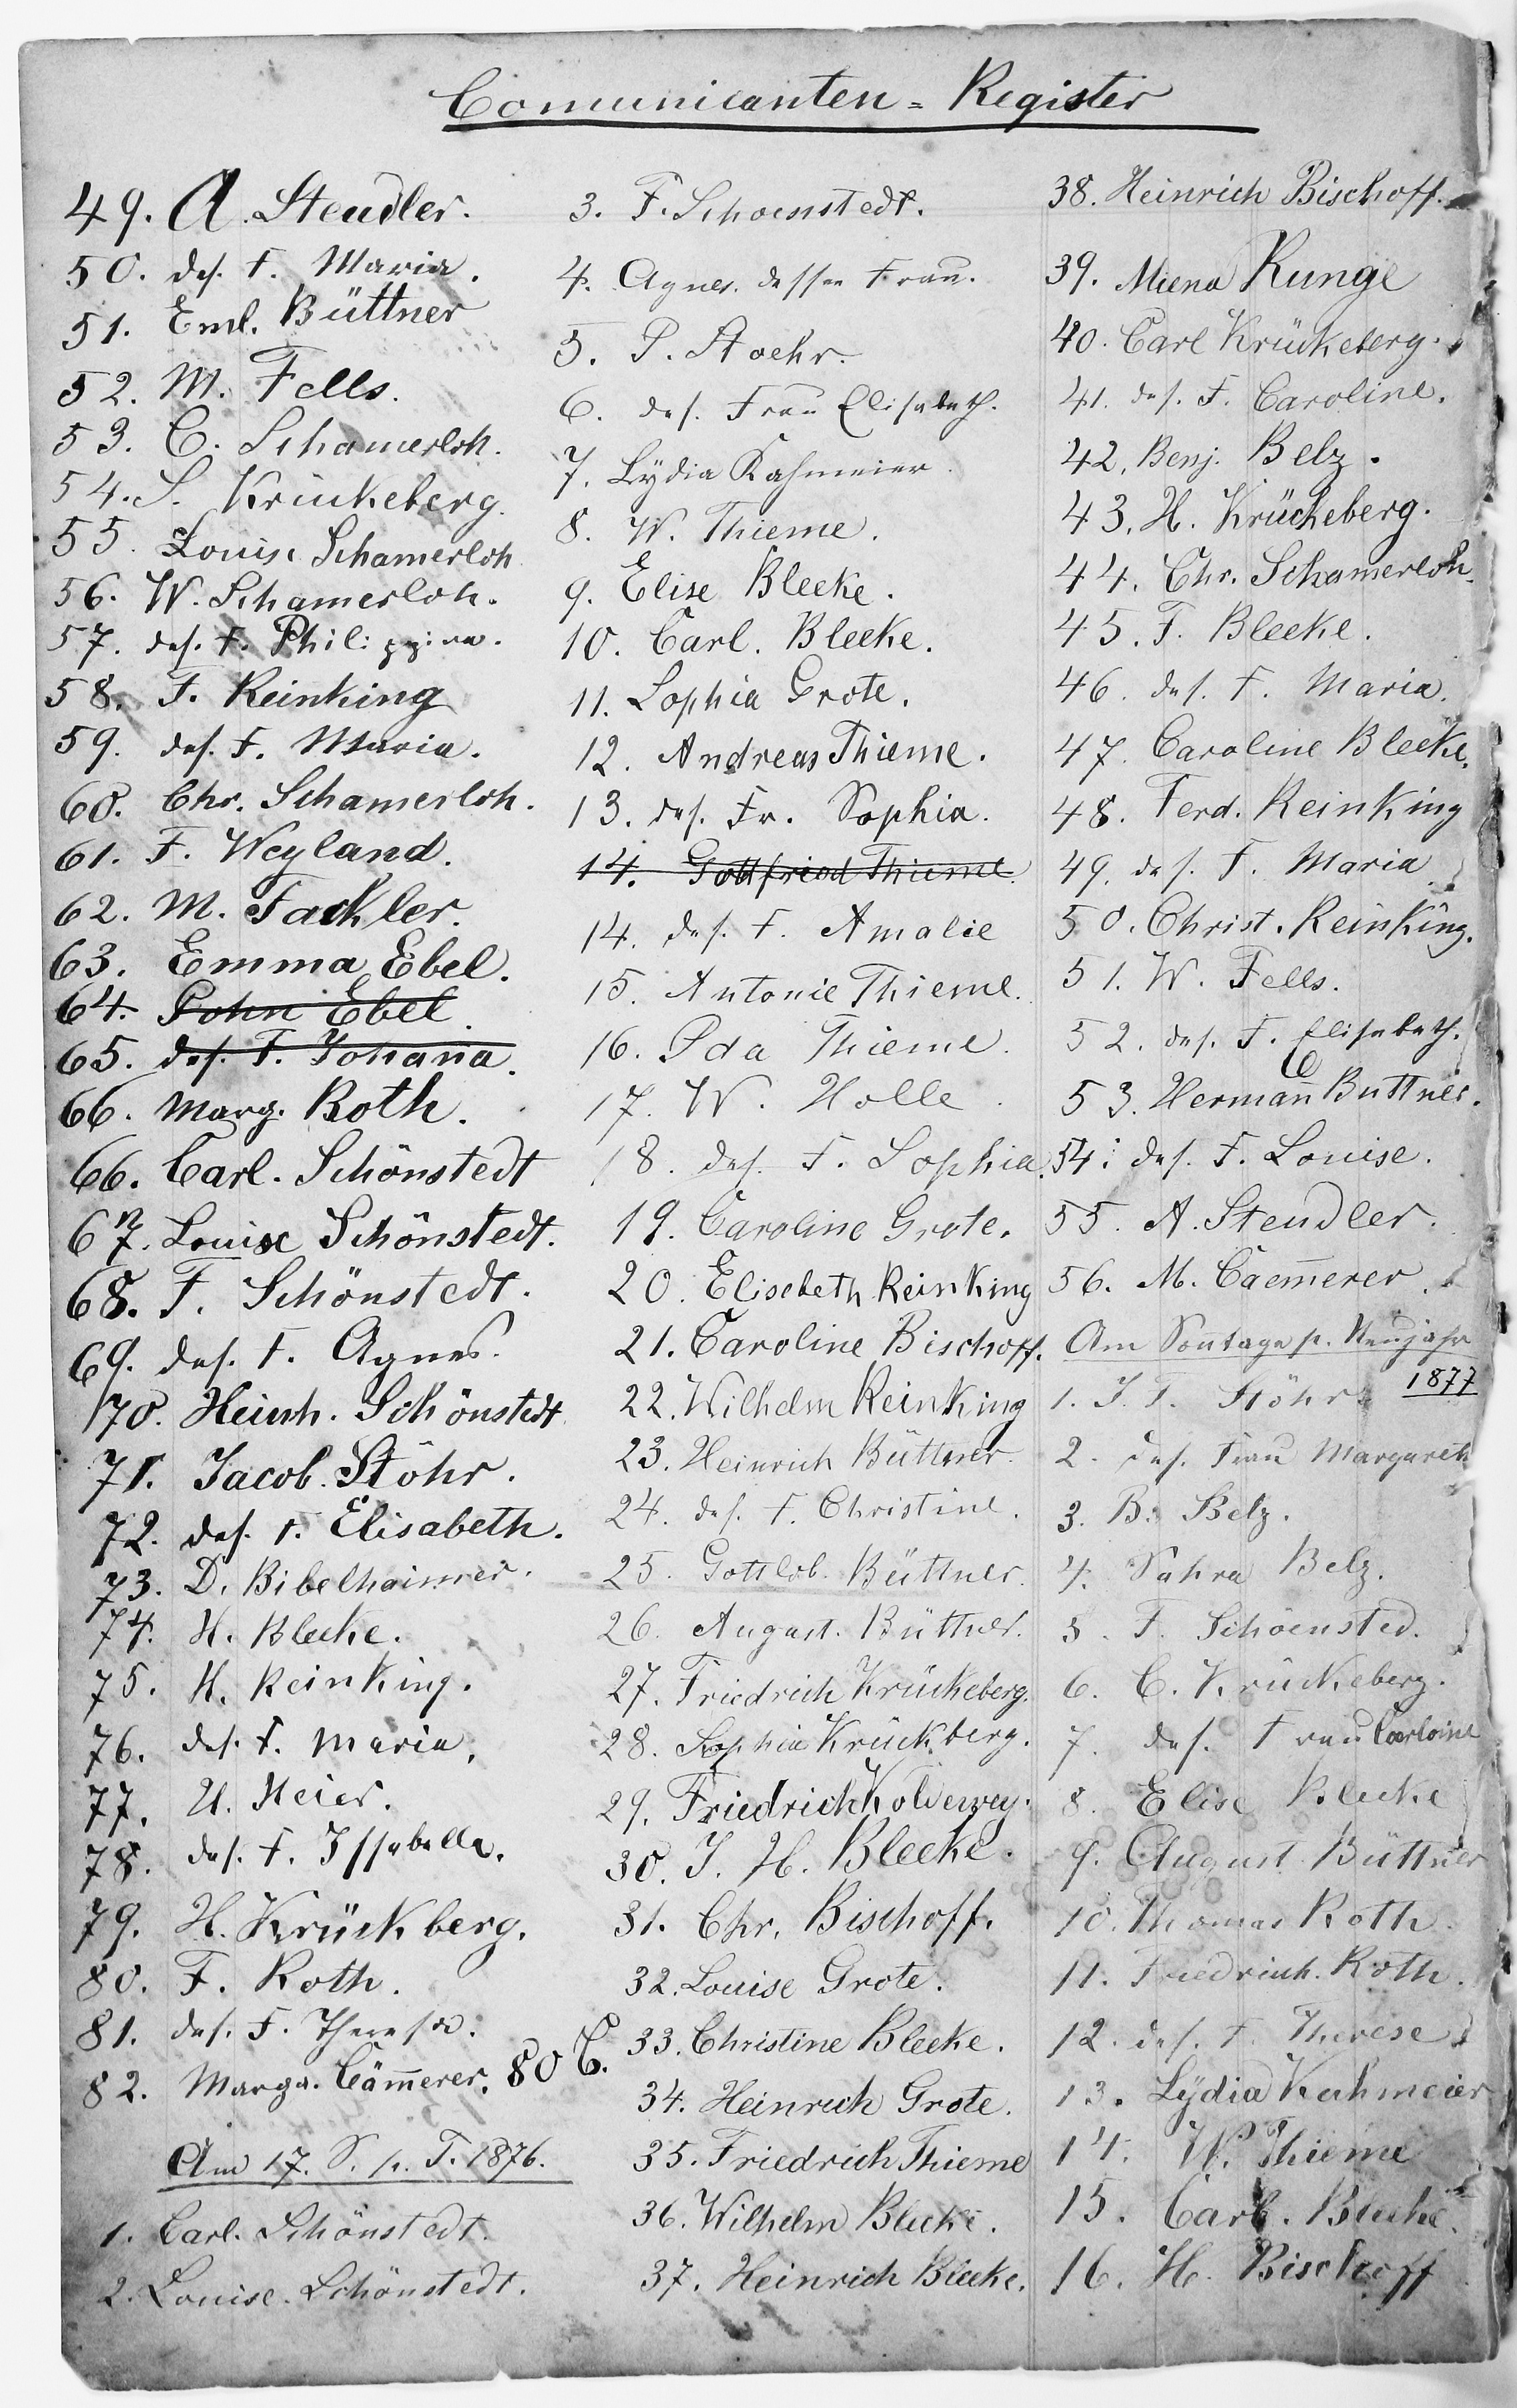 Comunicanten = Register
49. A. Steudler.
50. des. F. Maria.
51. Eml. Büttner
52. M. Fells.
53. C. Schamerloh.
54. S. Krückeberg.
55. Louise Schamerloh
56. W. Schamerloh.
57. des. F. Philippina.
58. F. Reinking
59. des. F. Maria.
60. Chr. Schamerloh.
61. F. Weyland.
62. M. Fackler.
63. Emma Ebel.
64. John Ebel.
65. des. F. Johanna.
66. Marg. Roth.
66. Carl. Schönstedt
67. Louise Schönstedt.
68. F. Schönstedt.
69. des. F. Agnes.
70. Heinh. Schönstedt
71. Jacob. Stöhr.
72. des. F. Elisabeth.
73. D. Bibelhaimer.
74. H. Blecke.
75. H. Reinking.
76. des. F. Maria.
77. H. Meier.
78. des. F. Issabella.
79. H. Krückberg.
80. F. Roth.
81. des. F. Theresa.
82. Marga. Cäm̄erer. 80 C.
Am 17. S. p. T. 1876.
1. Carl. Schönstedt.
2. Louise. Schönstedt.
3. F. Schoenstedt.
4. Agnes. dessen Frau.
5. P. Stoehr.
6. des. Frau Elisabeth.
7. Lydia Kahmeier.
8. W. Thieme.
9. Elise Blecke.
10. Carl. Blecke.
11. Sophia Grote.
12. Andreas Thieme.
13. des. Fr. Sophia.
14. Gottfried Thieme.
14. des. F. Amalie
15. Antonie Thieme.
16. Ida Thieme.
17. W. Holle.
18. des. F. Sophia.
19. Caroline Grote.
20. Elisebeth Reinking
21. Caroline Bischoff.
22. Wilhelm Reinking
23. Heinrich Büttner.
24. des. F. Christine.
25. Gottlob. Büttner.
26. August. Büttner.
27. Friedrich Krückeberg.
28. Sophia Krückberg.
29. Friedrich Koldewey.
30. J. H. Blecke.
31. Chr. Bischoff.
32. Louise Grote.
33. Christine Blecke.
34. Heinrich Grote.
35. Friedrich Thieme
36. Wilhelm Blecke.
37. Heinrich Blecke.
38. Heinrich Bischoff.
39. Miena Runge
40. Carl Krückeberg.
41. des. F. Caroline.
42. Benj. Belz.
43. H. Krückeberg.
44. Chr. Schamerloh.
45. F. Blecke.
46. des. F. Maria.
47. Caroline Blecke.
48. Ferd. Reinking
49. des. F. Maria
50. Christ. Reinking.
51. W. Fells.
52. des. F. Elisabeth.
53. Herman̄ Buttner.
54. des. F. Louise.
55. A. Steudler.
56. M. Caem̄erer.
Am Son̄tage p. Neujahr
1877
1. J. F. Stöhr
2. des. Frau Margareth
3. B. Belz.
4. Sahra Belz.
5. F. Schoensted.
6. C. Krückeberg.
7. des. Frau Carloine
8. Elise Blecke
9. August Büttner
10. Thomas Roth.
11. Friedrich. Roth.
12. des. F. Therese
13. Lydia Kahmeier
14. W. Thieme
15. Carl. Blecke.
16. H. Bischoff